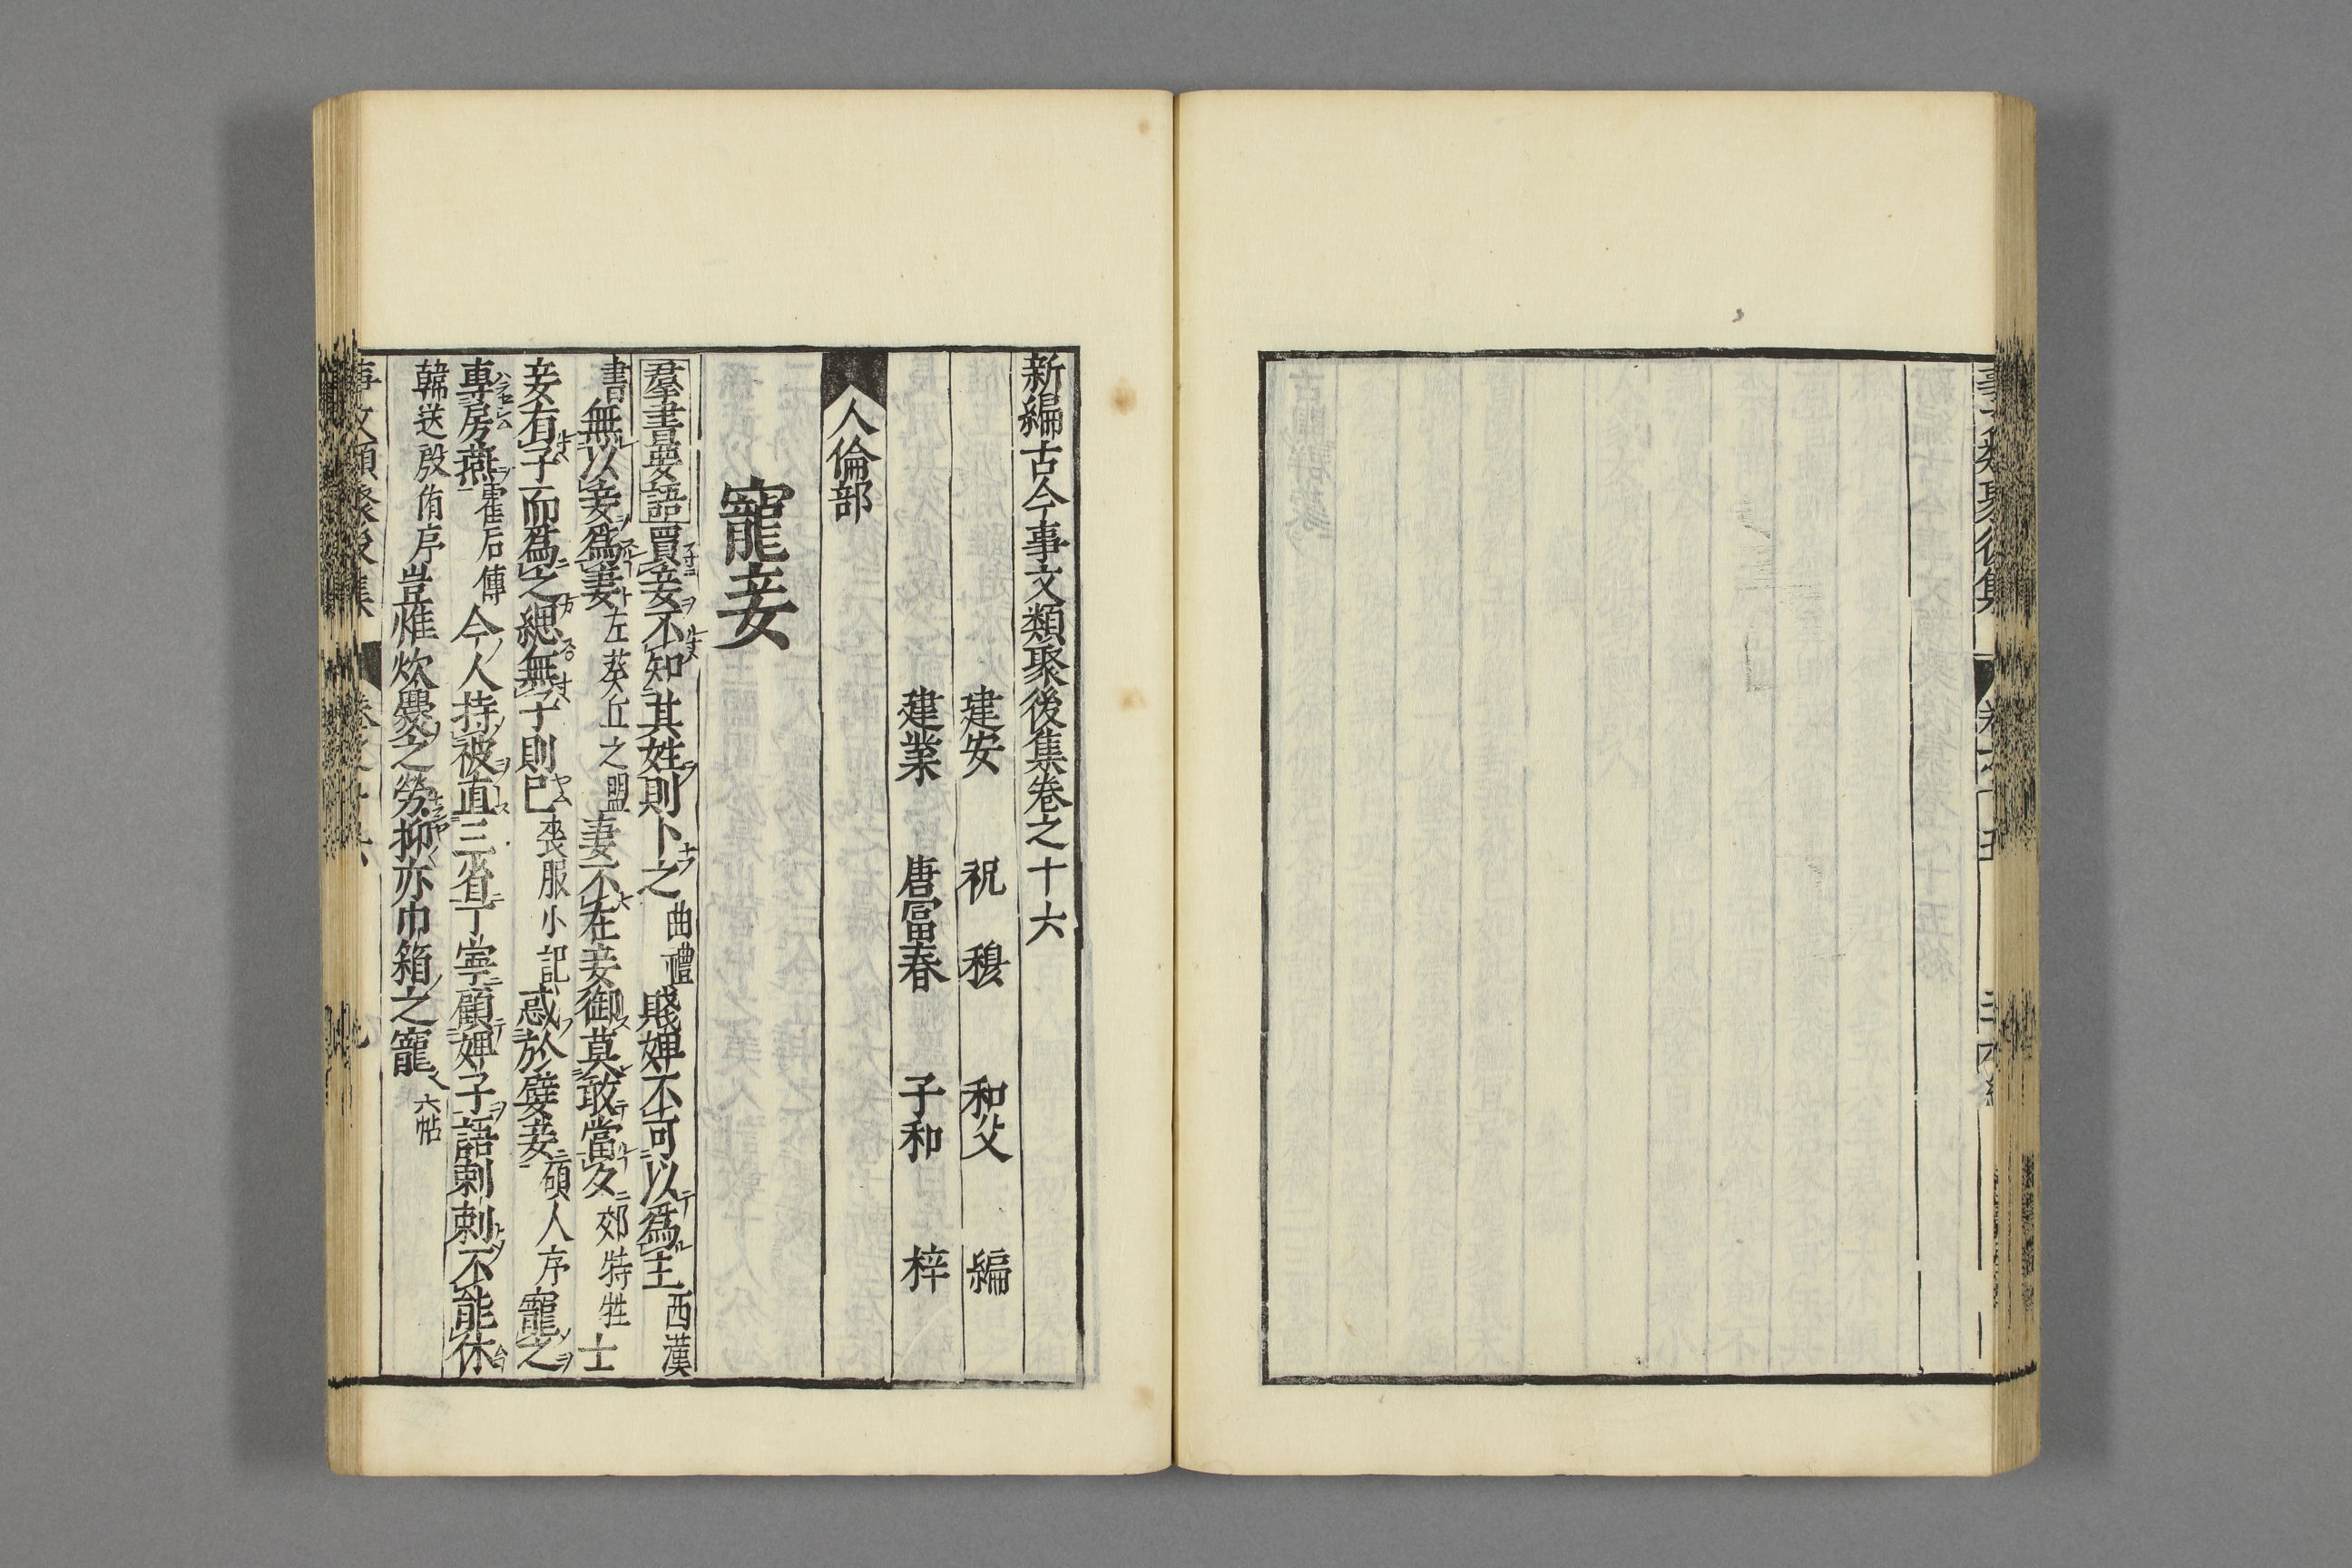 事文類聚後集 卷之十五
新編古今事文類聚後集卷之十六
建安 祝 穆 和父 編
建業 唐富春 子和 梓
人倫部
寵妾
羣書要語買妾不知其姓則卜之曲禮賤婢不可以爲主西漢
書無以妾爲妻左葵丘之盟妻不在妾御莫敢當夕郊特牲士
妾有子而爲之緦無子則已喪服小記惑於嬖妾碩人序寵之
專房燕霍后傳今人持被直三省丁寧顧婢子語剌剌不能休
韓送殷侑序豈惟炊爨之勞抑亦巾箱之寵六帖
事文類聚後集 卷之十六